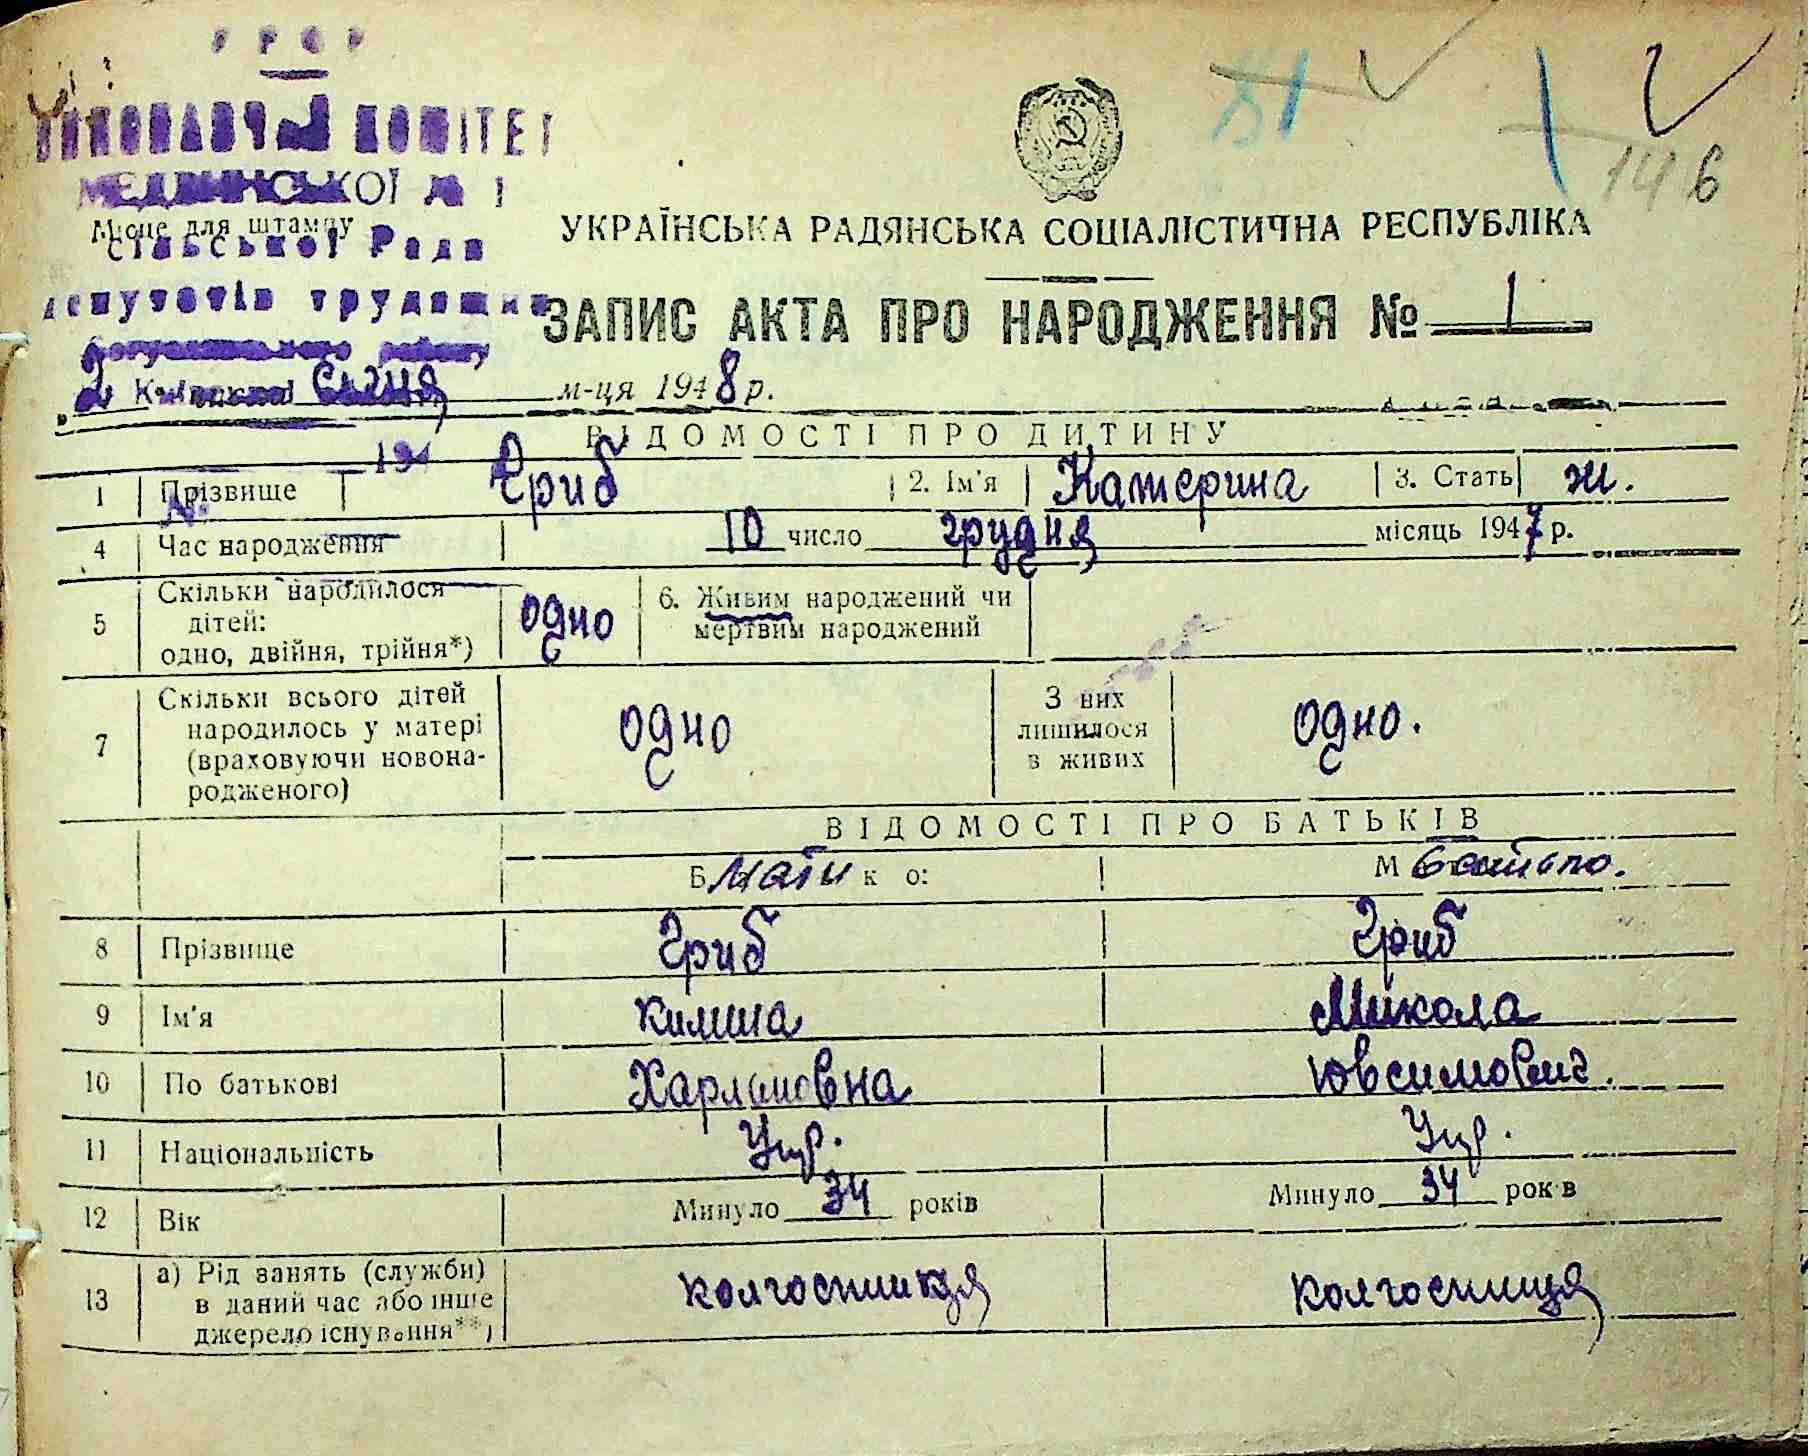 УРСР
ВИКОНАВЧИЙ КОМІТЕТ
МЕДВИНСЬКОЇ № 1
Місце для штампу
сільської Ради
депутатів трудящих
Богуславського району
Київської
2 Січня м-ця 1948 р.
194
№
51
146
УКРАЇНСЬКА РАДЯНСЬКА СОЦІАЛІСТИЧНА РЕСПУБЛІКА
ЗАПИС АКТА ПРО НАРОДЖЕННЯ № 1
ВІДОМОСТІ ПРО ДИТИНУ
1 Прізвище Гриб 2. Ім'я Катерина 3. Стать ж.
4 Час народження 10 число грудня місяць 1947 р.
5 Скільки народилося дітей: одно, двійня, трійня*) одно 6. Живим народжений чи мертвим народжений
7 Скільки всього дітей народилось у матері (враховуючи новонародженого) одно З них лишилося в живих одно.
ВІДОМОСТІ ПРО БАТЬКІВ
Мати Батько.
8 Прізвище Гриб Гриб
9 Ім'я Килина Микола
10 По батькові Харламовна Ювсимович.
11 Національність Укр. Укр.
12 Вік Минуло 34 років Минуло 34 років
13 а) Рід занять (служби) в даний час або інше джерело існування**) колгоспниця колгоспниця